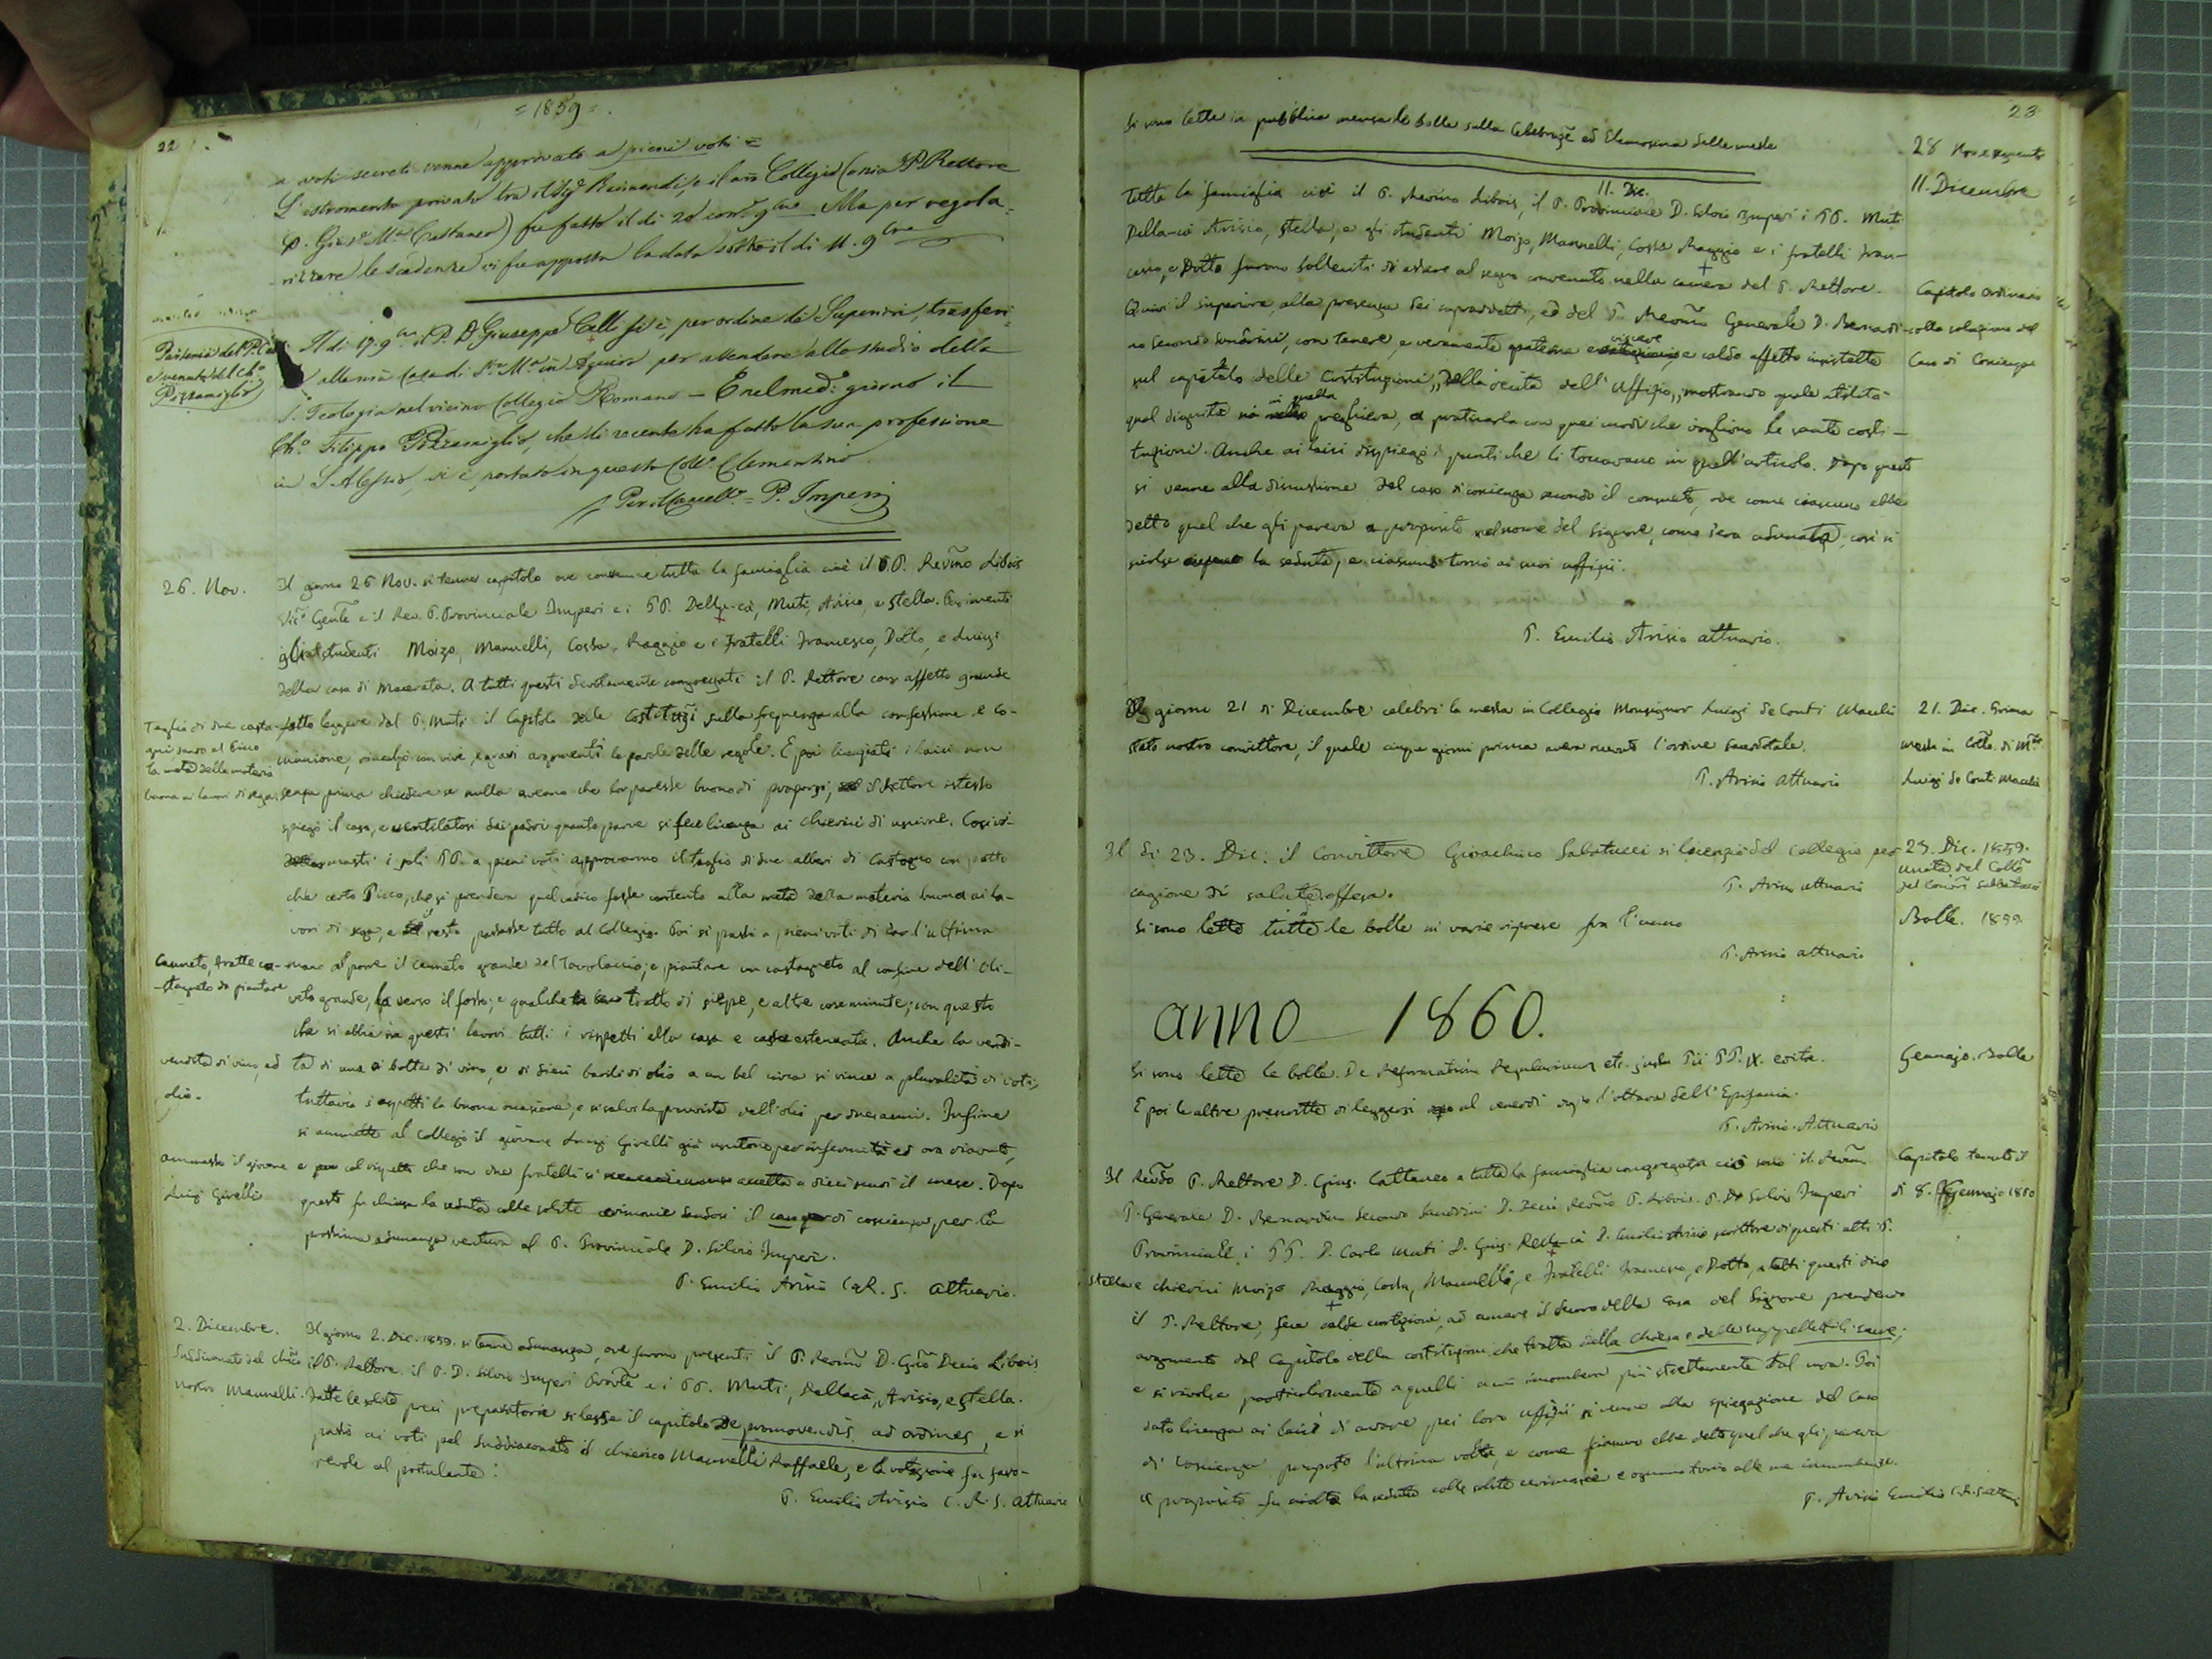 22
= 1859 =
a voti secreti venne approvato a pieni voti =
L'istromento privato tra il Sig. Raimondi, e il no Collegio (ossia P. Rettore
P. Gius. Ma Cattaneo) fu fatto il dì 20 corr. 9bre Ma per regola-
rizzare le scadenze vi fu apposta la data sotto il dì 11. 9bre
Partenza del P. Celli
e venuta del Ch.o
Pizzamiglio
Il dì 17. 9bre il P. D. Giuseppe Celli si è per ordine de' Superiori, trasferi-
alla nra Casa di Sta Ma in Aquiro per attendere allo studio della
S. Teologia nel vicino Collegio Romano — E nel med.o giorno il
Ch.o Filippo Pizzamiglio, che di recente ha fatto la sua professione
in S. Alessio, si è portato in questo Coll.o Clementino.
P. Imperi
26. Nov.
Il giorno 26 Nov. si tenne capitolo ove convenne tutta la famiglia cioè il P. Revmo Libois
Vic.o Gente e il Rev. P. Provinciale Imperi e i PP. Della-cà, Muti, Avisio, e Stella. Parimenti
gli studenti Moizo, Mannelli, Cossa, Raggio e i fratelli Francesco, Dotto, e Luigi
della casa di Macerata. A tutti questi devotamente congregati il P. Rettore con affetto grande
Taglio di due casta-
gni dando al Picco
la metà della materia
buona ai lavori di sega
fatto leggere dal P. Muti il Capitolo delle Costituzi sulla frequenza alla confessione e Co-
munione, rincalzò con vive, e gravi argomenti le parole delle regole. E poi licenziati i laici non
senza prima chiedere se nulla aveano che lor paresse buono di proporsi, il Rettore istesso
spiegò il caso, e ventilatosi dai padri quanto parve si fece licenza ai chierici di uscirne. Così ri-
masti i soli PP. a pieni voti approvarono il taglio di due alberi di Castagno con patto
che certo Picco, che si prendeva quel carico fosse contento alla metà della materia buona ai la-
vori di sega, e il resto passasse tutto al Collegio. Poi si passò a pieni voti di dar l'ultima
Canneto, fratte ca-
stagneto da piantare
mano al porre il canneto grande del Tavolaccio; e piantare un castagneto al confine dell'Oli-
veto grande, verso il fosso; e qualche tratto di siepe, e altre cose minute; con questo
che si abbia in questi lavori tutti i rispetti alla casa e estenuata. Anche la vendi-
vendita di vino, ed
olio.
ta di una botte di vino, e di dieci barili di olio a un bel circa si vinse a pluralità di voti,
tuttavia s'aspetti la buona occasione, e si salvi la provvista dell'olio per due anni. Infine
ammesso il giovane
Luigi Givelli
si ammette al Collegio il giovane Luigi Givelli già uscitone per infermità ed ora riavuto,
e col rispetto che son due fratelli si accetta a dieci scudi il mese. Dopo
questo fu chiusa la seduta colle solite cerimonie dandosi il caso di coscienza per la
prossima adunanza ventura al P. Provinciale D. Silvio Imperi.
P. Emilio Avisio C.R.S. attuario.
2. Dicembre.
Suddiaconato del chico
nostro Mannelli.
Il giorno 2. Dic. 1859. si tenne adunanza, ove furono presenti il P. Revmo D. Decio Libois
il P. Rettore il P. D. Silvio Imperi Provle e i PP. Muti, Dellacà, Avisio, e Stella.
Fatte le solite preci preparatorie si lesse il capitolo De promovendis ad ordines, e si
passò ai voti pel Suddiaconato il chierico Mannelli Raffaele, e la votazione fu favo-
revole al postulante:
P. Emilio Avisio C. R. S. attuario
23
Si sono lette in pubblica mensa le bolle sulla Celebraze ed Elemosina delle messe
28 Nov
11. Dic.
11. Dicembre
Tutta la famiglia cioè il P. Revmo Libois, il P. Provinciale D. Silvio Imperi i PP. Muti
Della-cà Avisio, Stella, e gli studenti Moizo, Mannelli, Cossa Raggio e i fratelli Fran-
cesco, e Dotto furono solleciti di essere al segno convenuto nella camera del P. Rettore.
Capitolo Ordinario
colla soluzione del
Caso di Coscienza
Quivi il superiore, alla presenza dei sopraddetti, ed del P. Revmo Generale D. Bernardi-
no Secondo Sandrini, con tenere, e veramente paterne viscere e caldo affetto insistette
sul capitolo delle Costituzioni, „della recita dell'Uffizio„ mostrando quale utilità
qual dignità sia in quella preghiera, a praticarla con quei modi che vogliono le sante costi-
tuzioni. Anche ai laici dispiegò i punti che li toccavano in quell'articolo. Dopo questo
si venne alla discussione del caso di coscienza secondo il consueto, ove come ciascuno ebbe
detto quel che gli pareva a proposito nel nome del Signore, come s'era adunata, così si
sciolse la seduta, e ciascuno tornò ai suoi uffizii.
P. Emilio Avisio attuario.
giorno 21 di Dicembre celebrò la messa in Collegio Monsignor Luigi de Conti Macchi
stato nostro convittore, il quale cinque giorni prima avea ricevuto l'ordine sacerdotale.
P. Avisio attuario
21. Dic. Prima
messa in Collo. di Mre
Luigi de Conti Macchi
Il dì 23. Dic. il Convittore Gioachino Sabatucci si licenziò del Collegio per
cagione di salute offesa.
P. Avisio attuario
23. Dic. 1859.
uscita del Collo
del Convre Sabbatucci
Si sono lette tutte le bolle in varie riprese fra l'anno
P. Avisio attuario
Bolle. 1859.
anno 1860.
Si sono lette le bolle. De Reformatione Regularium etc. jussu Pii PP. IX. edita.
E poi le altre prescritte di leggersi al venerdì dopo l'ottava dell'Epifania.
P. Avisio. Attuario
Gennajo. Bolle
Il Revdo P. Rettore D. Gius. Cattaneo a tutta la famiglia congregata cioè sono il Revmo
P. Generale D. Bernardino Secondo Sandrini D. Decio Revmo P. Libois. P. D. Silvio Imperi
Provinciale i PP. D. Carlo Muti D. Gius. Della-cà D. Emilio Avisio scrittore di questi atti P.
Stella e chierici Moizo Raggio, Cossa, Mannelli, e Fratelli Francesco, e Dotto, a tutti questi dico
il P. Rettore, fece calde esortazioni, ad amare il decoro della Casa del Signore prendendo
argomento dal Capitolo della costituzione, che tratta della chiesa e delle suppellettili sacre;
e si rivolse particolarmente a quelli a cui incombeva più strettamente tal cura. Poi
dato licenza ai laici d'andare pei loro uffizii si venne alla spiegazione del Caso
di coscienza proposto l'ultima volta, e come ciascuno ebbe detto quel che gli pareva
a proposito fu sciolta la seduta colle solite cerimonie e ognuno tornò alle sue incumbenze.
P. Avisio Emilio C.R.S. attuario
Capitolo tenuto il
dì 8. Gennajo 1860